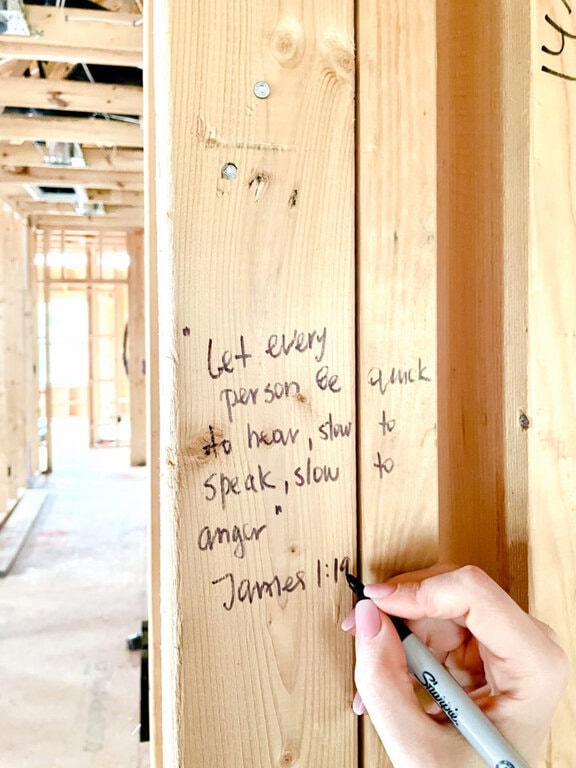 "Let every
person be quick
to hear, slow to
speak, slow to
anger"
James 1:19
Sharpie
14